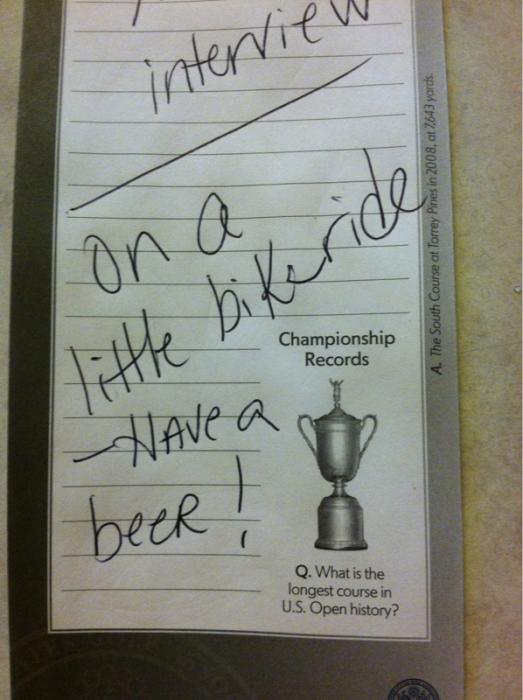 interview
on a
little bikeride
- HAVE a
beer!
Championship
Records
Q. What is the
longest course in
U.S. Open history?
A. The South Course at Torrey Pines in 2008, at 7,643 yards.